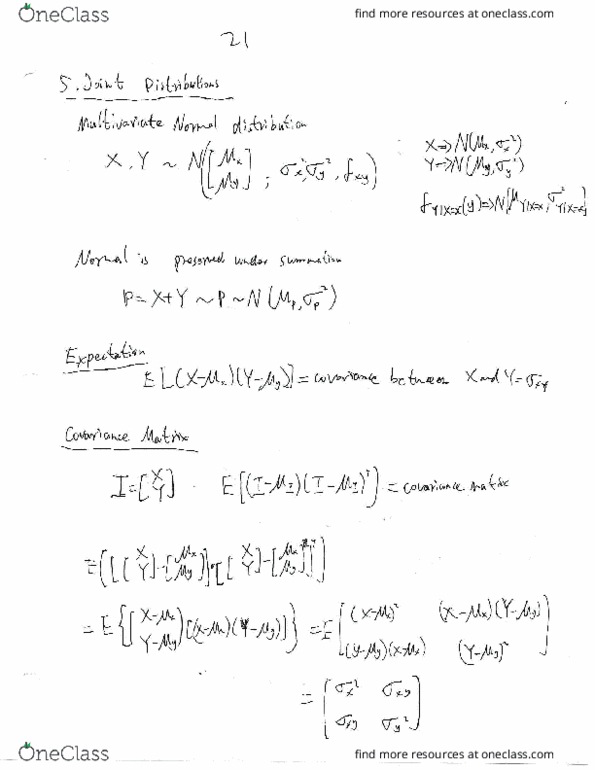 OneClass
find more resources at oneclass.com
21
5. Joint Distributions
Multivariate Normal distribution
X, Y ~ N([μx μy]; σx², σy², ρxy)
X => N(μx, σx²)
Y => N(μy, σy²)
f Y|X=x (y) => N(μ Y|X=x, σ² Y|X=x)
Normal is preserved under summation
P = X+Y ~ P ~ N(μp, σp²)
Expectation
E[(X-μx)(Y-μy)] = covariance between X and Y = σxy
Covariance Matrix
I = [X Y] E[(I-μI)(I-μI)ᵀ] = covariance matrix
= E([[X Y]-[μx μy]]·[[X Y]-[μx μy]]ᵀ)
= E{[X-μx Y-μy][(X-μx)(Y-μy)]} = E[(X-μx)² (X-μx)(Y-μy) (Y-μy)(X-μx) (Y-μy)²]
= [σx² σxy σxy σy²]
OneClass
find more resources at oneclass.com